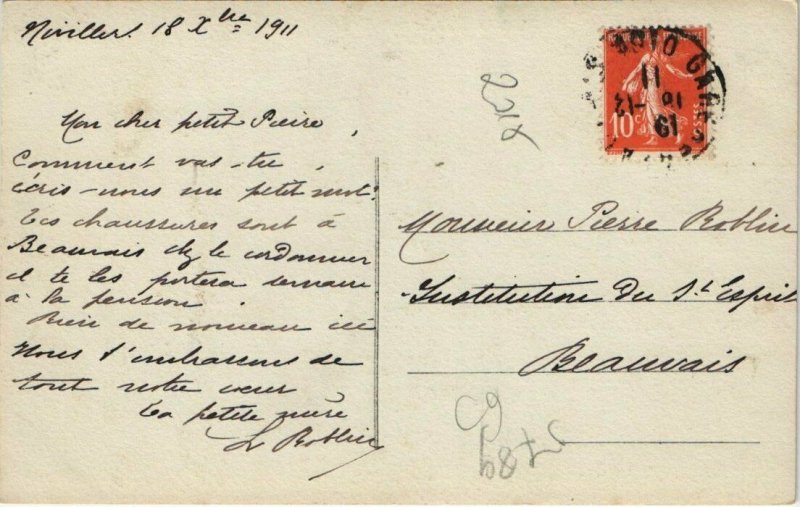 Nivillers 18 Xbre 1911
Mon cher petit Pierre,
Comment vas-tu,
écris-nous un petit mot.
Tes chaussures sont à
Beauvais chez le cordonnier
il te les portera demain
à la pension.
Rien de nouveau ici
Nous t'embrassons de
tout notre cœur
Ta petite mère
L Roblin
10 c
POSTES
11
19 -12
19
GARE
Monsieur Pierre Roblin
Institution du St Esprit
Beauvais